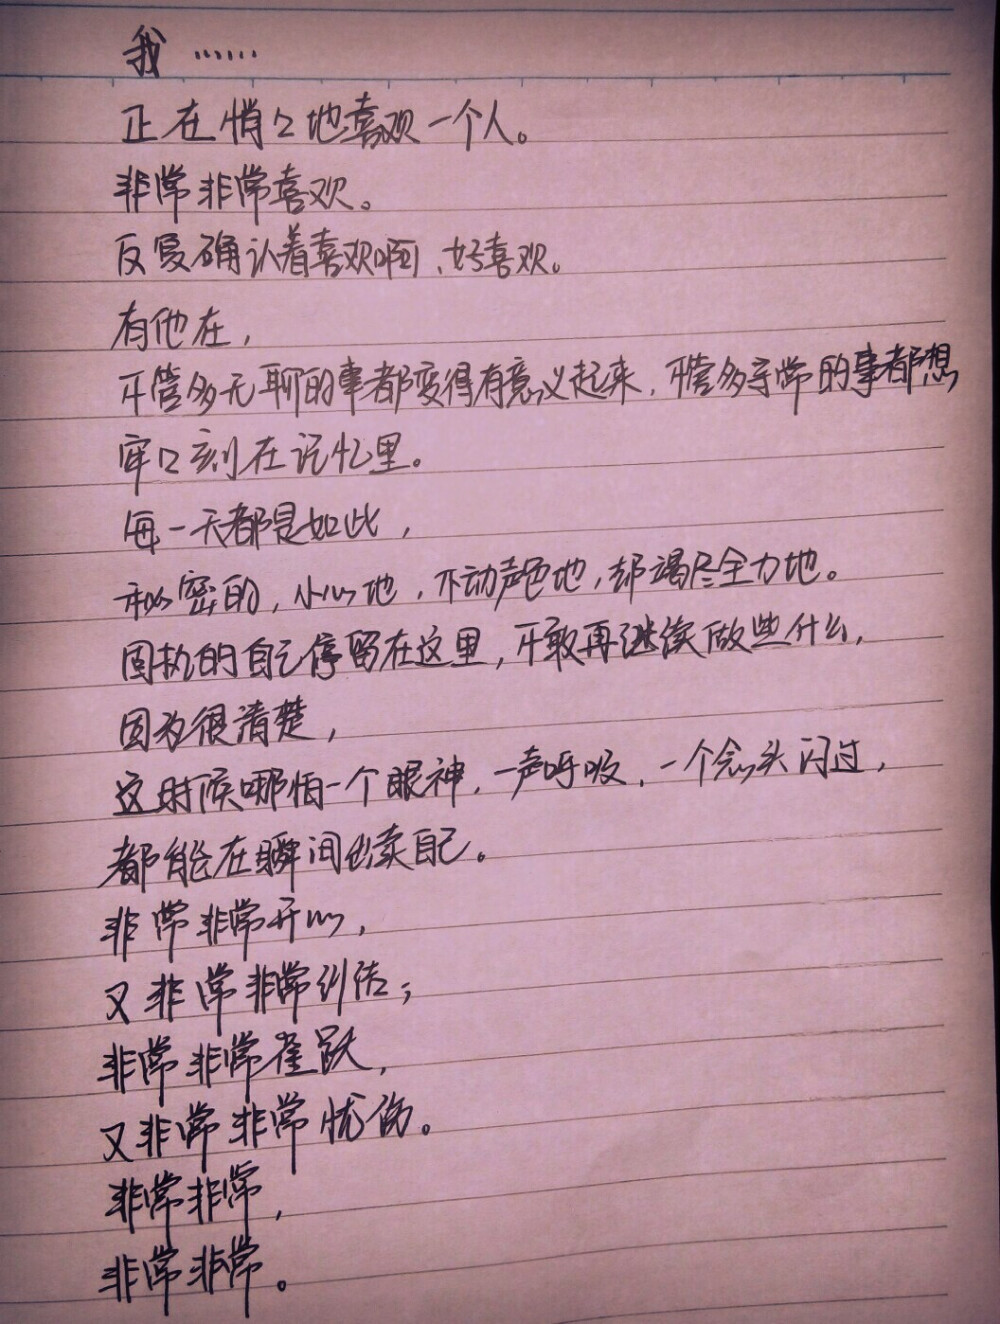 我……
正在悄々地喜欢一个人。
非常非常喜欢。
反复确认着喜欢啊、好喜欢。
有他在，
不管多无聊的事都变得有意义起来，不管多寻常的事都想
牢々刻在记忆里。
每一天都是如此，
秘密的，小心地，不动声色地，却竭尽全力地。
固执的自己停留在这里，不敢再继续做些什么，
因为很清楚，
这时候哪怕一个眼神，一声呼吸，一个念头闪过，
都能在瞬间出卖自己。
非常非常开心，
又非常非常纠结；
非常非常雀跃，
又非常非常忧伤。
非常非常，
非常非常。